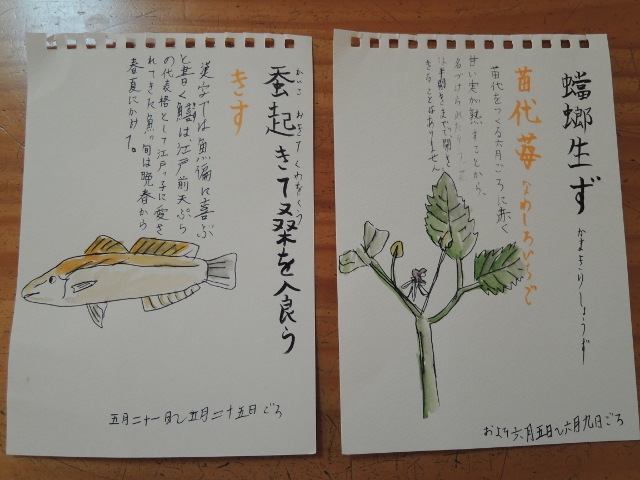 かいこ おきてくわをくう
蚕起きて桑を食う
きす
漢字では魚偏に喜ぶ
と書く鱚は、江戸前天ぷら
の代表格として江戸っ子に愛さ
れてきた魚。旬は晩春から
春夏にかけて。
五月二十一日〜五月二十五日ごろ
蟷螂生ず
かまきりしょうず
苗代苺 なわしろいちご
苗代をつくる六月ごろに赤く
甘い実が熟すことから、
名づけられた
は半開きまでで開き
きることはありません。
およそ六月五日〜六月九日ごろ